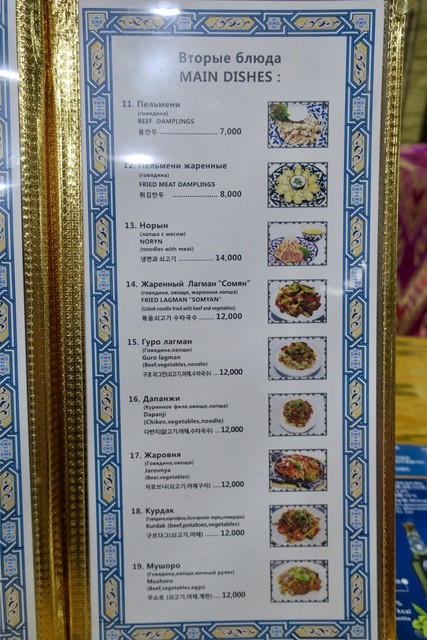 Вторые блюда
MAIN DISHES :
11. Пельмени
(говядина)
BEEF DAMPLINGS
물만두 ........................ 7,000
12. Пельмени жаренные
(говядина)
FRIED MEAT DAMPLINGS
튀김만두 ................... 8,000
13. Норын
(лапша с мясом)
NORYN
(noodles with meat)
냉면과 쇠고기 ............... 14,000
14. Жаренный Лагман "Сомян"
(говядина, овощи, жаренная лапша)
FRIED LAGMAN "SOMYAN"
(Uzbek noodle fried with beef and vegetables)
볶음쇠고기 수타국수 ....... 12,000
15. Гуро лагман
(Говядина,овощи)
Guro lagman
(Beef,vegetables,noodle)
구로 라그만(쇠고기,야채,수타국수) ...12,000
16. Дапанжи
(Куринное филе,овощи,лапша)
Dapanji
(Chiken,vegetables,noodle)
다판지(닭고기,야채,수타국수) ...12,000
17. Жаровня
(Говядина,овощи)
Jarovnya
(Beer,vegetables)
자로브냐(쇠고기,야채구이) ....12,000
18. Курдак
Kurdak (beef,potatoes,vegetables)
구르다그(쇠고기,야채) ....... 12,000
19. Мушоро
(Говядина,овощи,яичный рулет)
Mushoro
(Beef,vegetables,eggs)
무쇼로 (쇠고기,야채,계란) .... 12,000
kcal